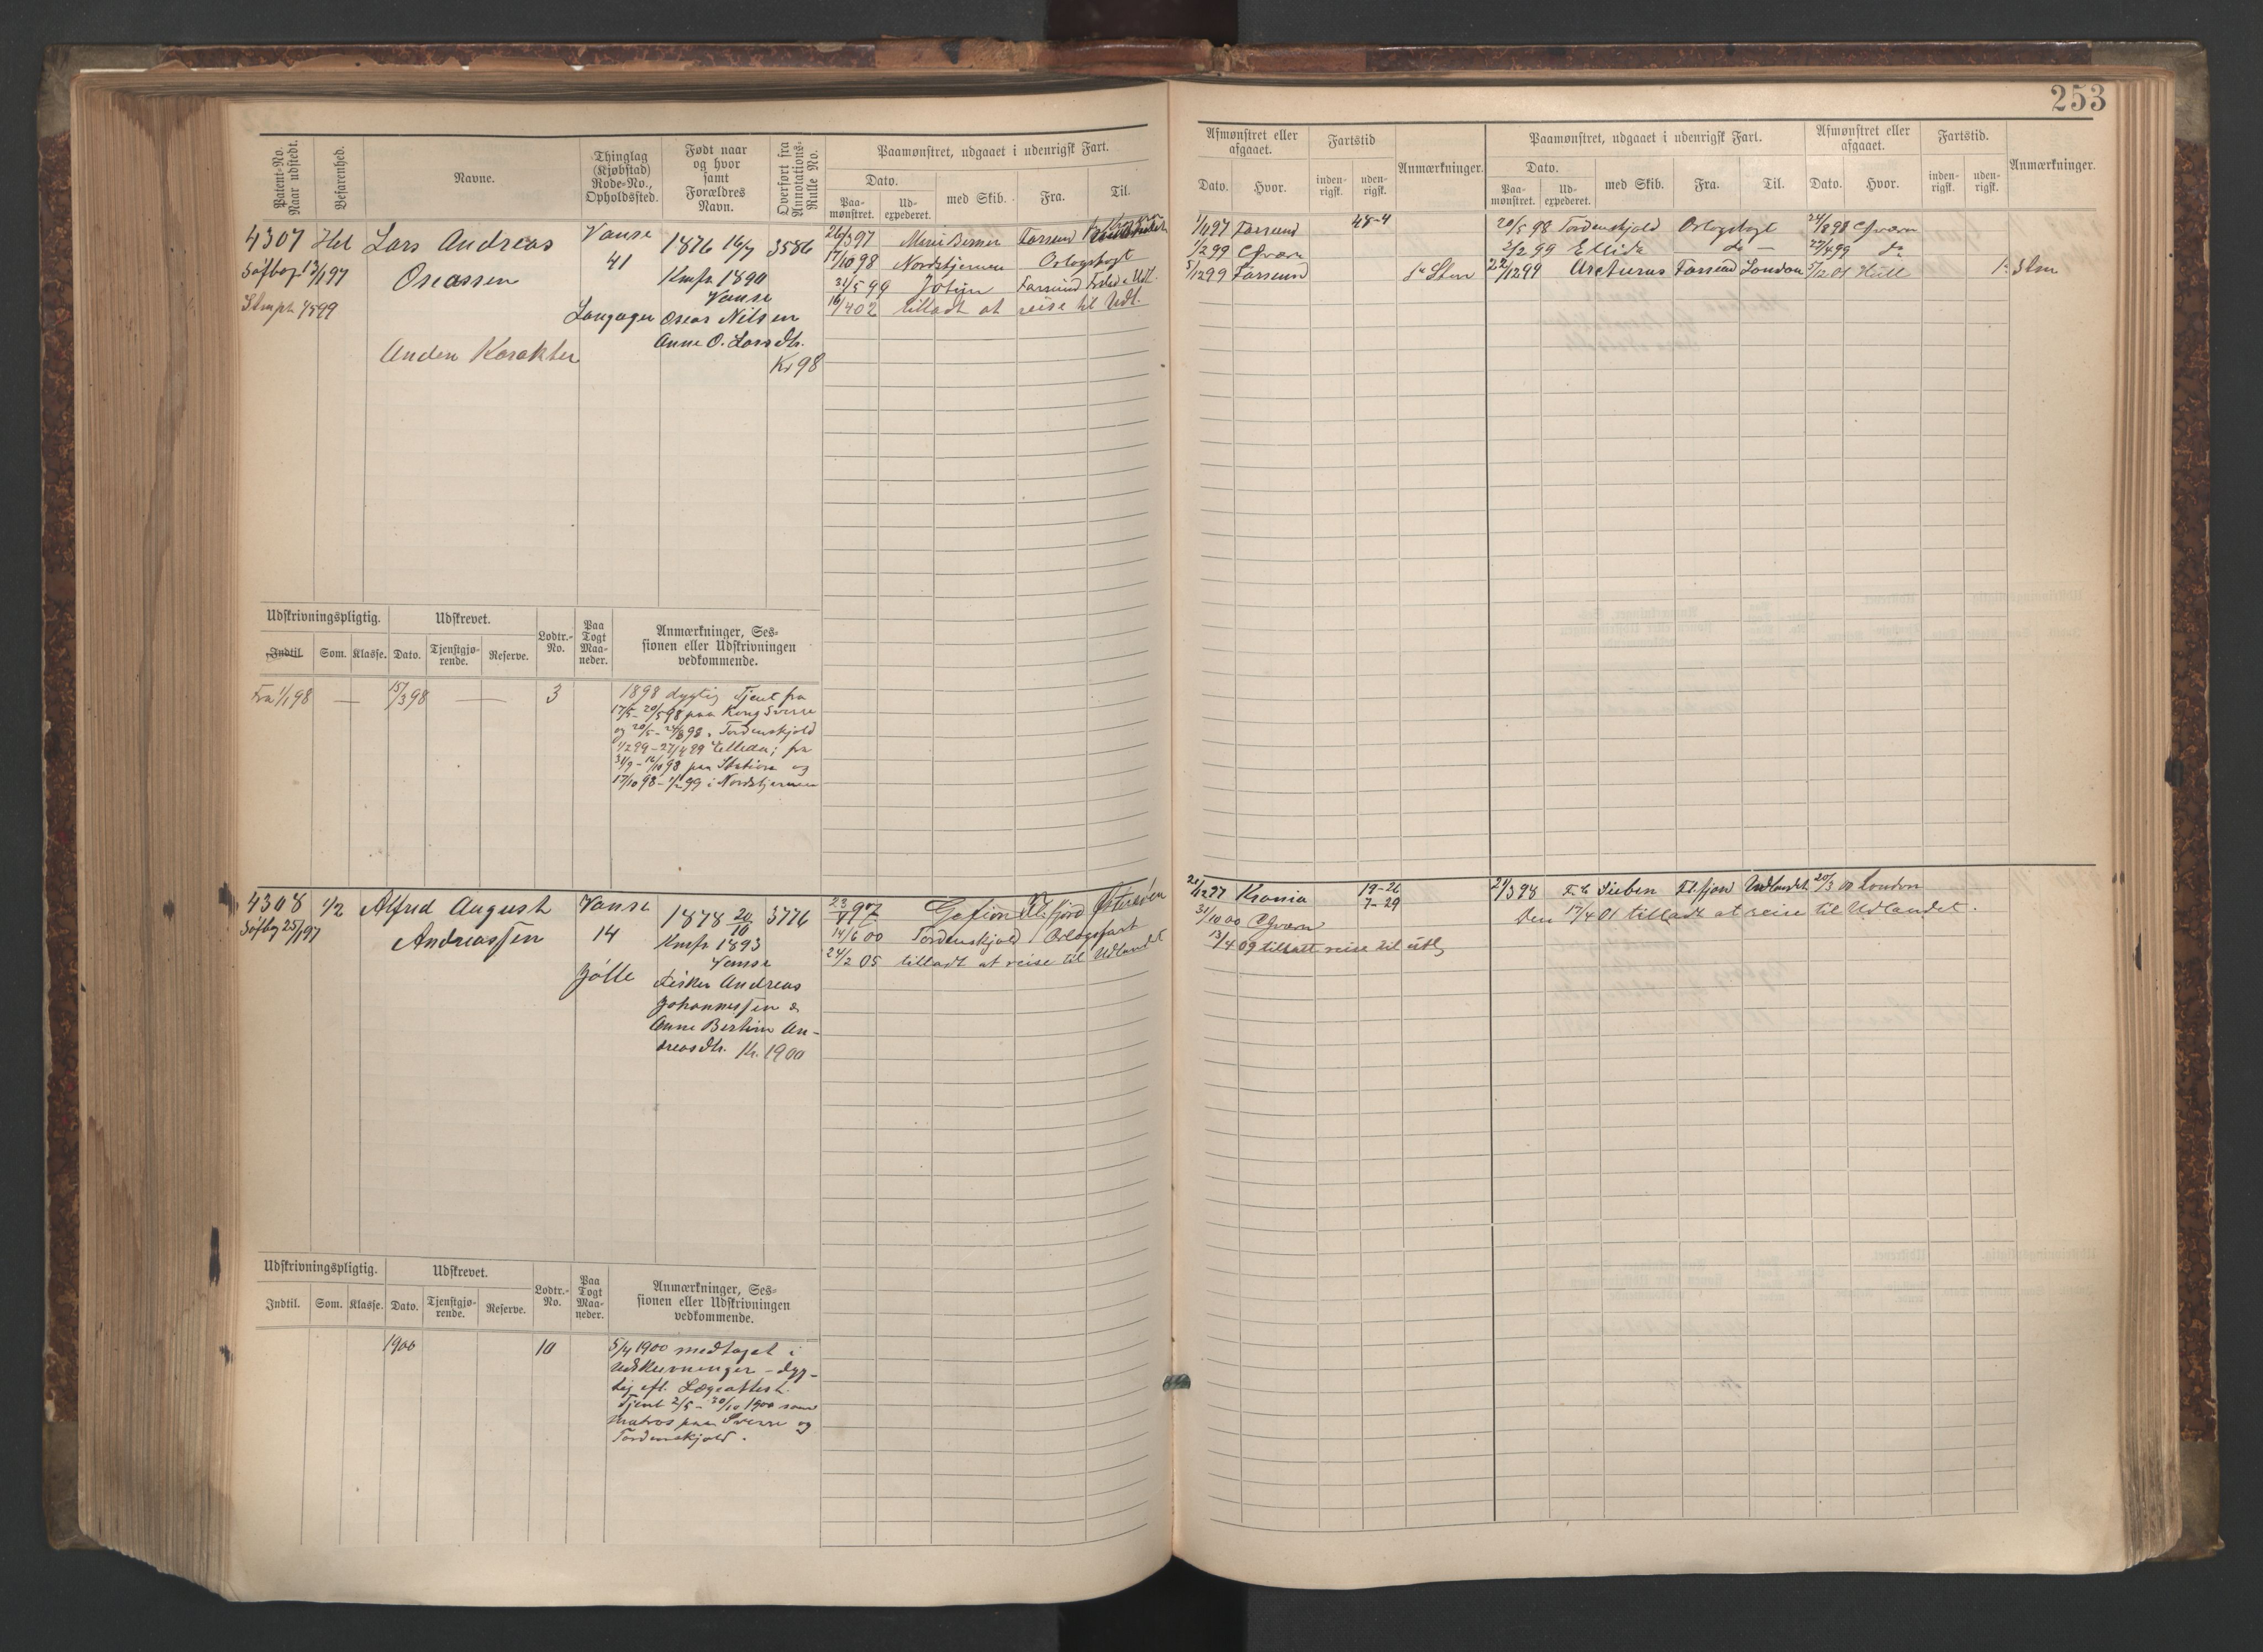 253
Patent-No. Naar udstedt.
Befarenhed.
Navne.
Thinglag (Kjøbstad) Rode-No., Opholdssted.
Født naar og hvor samt Forældres Navn.
Overført fra Annotations-Rulle No.
Paamønstret, udgaaet i udenrigsk Fart.
Dato.
Paa-mønstret.
Ud-expederet.
med Skib.
Fra.
Til.
4307 Hel Lars Andreas Vanse 1876 16/7 3586
Søfbog 13/1 97 Oseassen 41 Kmfr. 1890
Vanse
Langager Oseas Nilsen
Anne O. Larsdtr.
Anden Karakter
Kr 98
26/3 97 Farsund
17/10 98 Nordstjernen Orlogstogt
31/5 99 Farsund
16/4 02 tilladt at reise til Udl.
Udskrivningspligtig.
Udskrevet.
Lodtr.-No.
Paa Togt Maa-neder.
Anmærkninger, Ses-
sionen eller Udskrivningen
vedkommende.
Indtil.
Som.
Klasse.
Dato.
Tjenstgjø-rende.
Reserve.
Fra 1/1 98 — 15/3 98 — 3
1898 dygtig Tjent fra
17/5 - 20/5 98 paa Kong Sverre
og 20/5 - 24/8 98 " Tordenskjold
1/2 99 - 27/4 99 Ellida; fra
paa Station og
17/10 98 - 1/2 99 i Nordstjernen
4308 1/2 Alfred August Vanse 1878 20/10 3776
Søfbog 25/1 97 Andreassen 14 Kmfr. 1893
Vanse
Jølle Fisker Andreas
Johannessen &
Anne Bertine An-
dreasdtr. Kr. 1900
Gefion Fl. fjord
14/6 00 Tordenskjold Orlogsfart
24/2 05 tilladt at reise til Udlandet
Udskrivningspligtig.
Udskrevet.
Lodtr.-No.
Paa Togt Maa-neder.
Anmærkninger, Ses-
sionen eller Udskrivningen
vedkommende.
Indtil.
Som.
Klasse.
Dato.
Tjenstgjø-rende.
Reserve.
1900 10
5/4 1900 medtaget i
Udskrivninger - dyg-
tig efl. Lægeattest.
Tjent 2/5 - 30/10 1900 som
Matros paa Sverre og
Tordenskjold.
Afmønstret eller afgaaet.
Fartstid
Anmærkninger.
Paamønstret, udgaaet i udenrigsk Fart.
Afmønstret eller afgaaet.
Fartstid.
Anmærkninger.
Dato.
Hvor.
inden-rigsk.
uden-rigsk.
Dato.
Paa-mønstret.
Ud-expederet.
med Skib.
Fra.
Til.
Dato.
Hvor.
inden-rigsk.
uden-rigsk.
Farsund 48-4 20/5 98 Tordenskjold Orlogstogt 24/8 98 Cfværn
1/2 99 Cfværn 2/2 99 Ellida do — 27/4 99 do
5/12 99 Farsund 22/12 99 Arcturus Farsund London 5/12 01 Hull
Kronia 19-26 21/3 98 Fl. fjord Udlandet London
7-29 Den 17/4 01 tilladt at reise til Udlandet.
31/10 00 Cfværn
13/4 09 tillatt reise til utl.